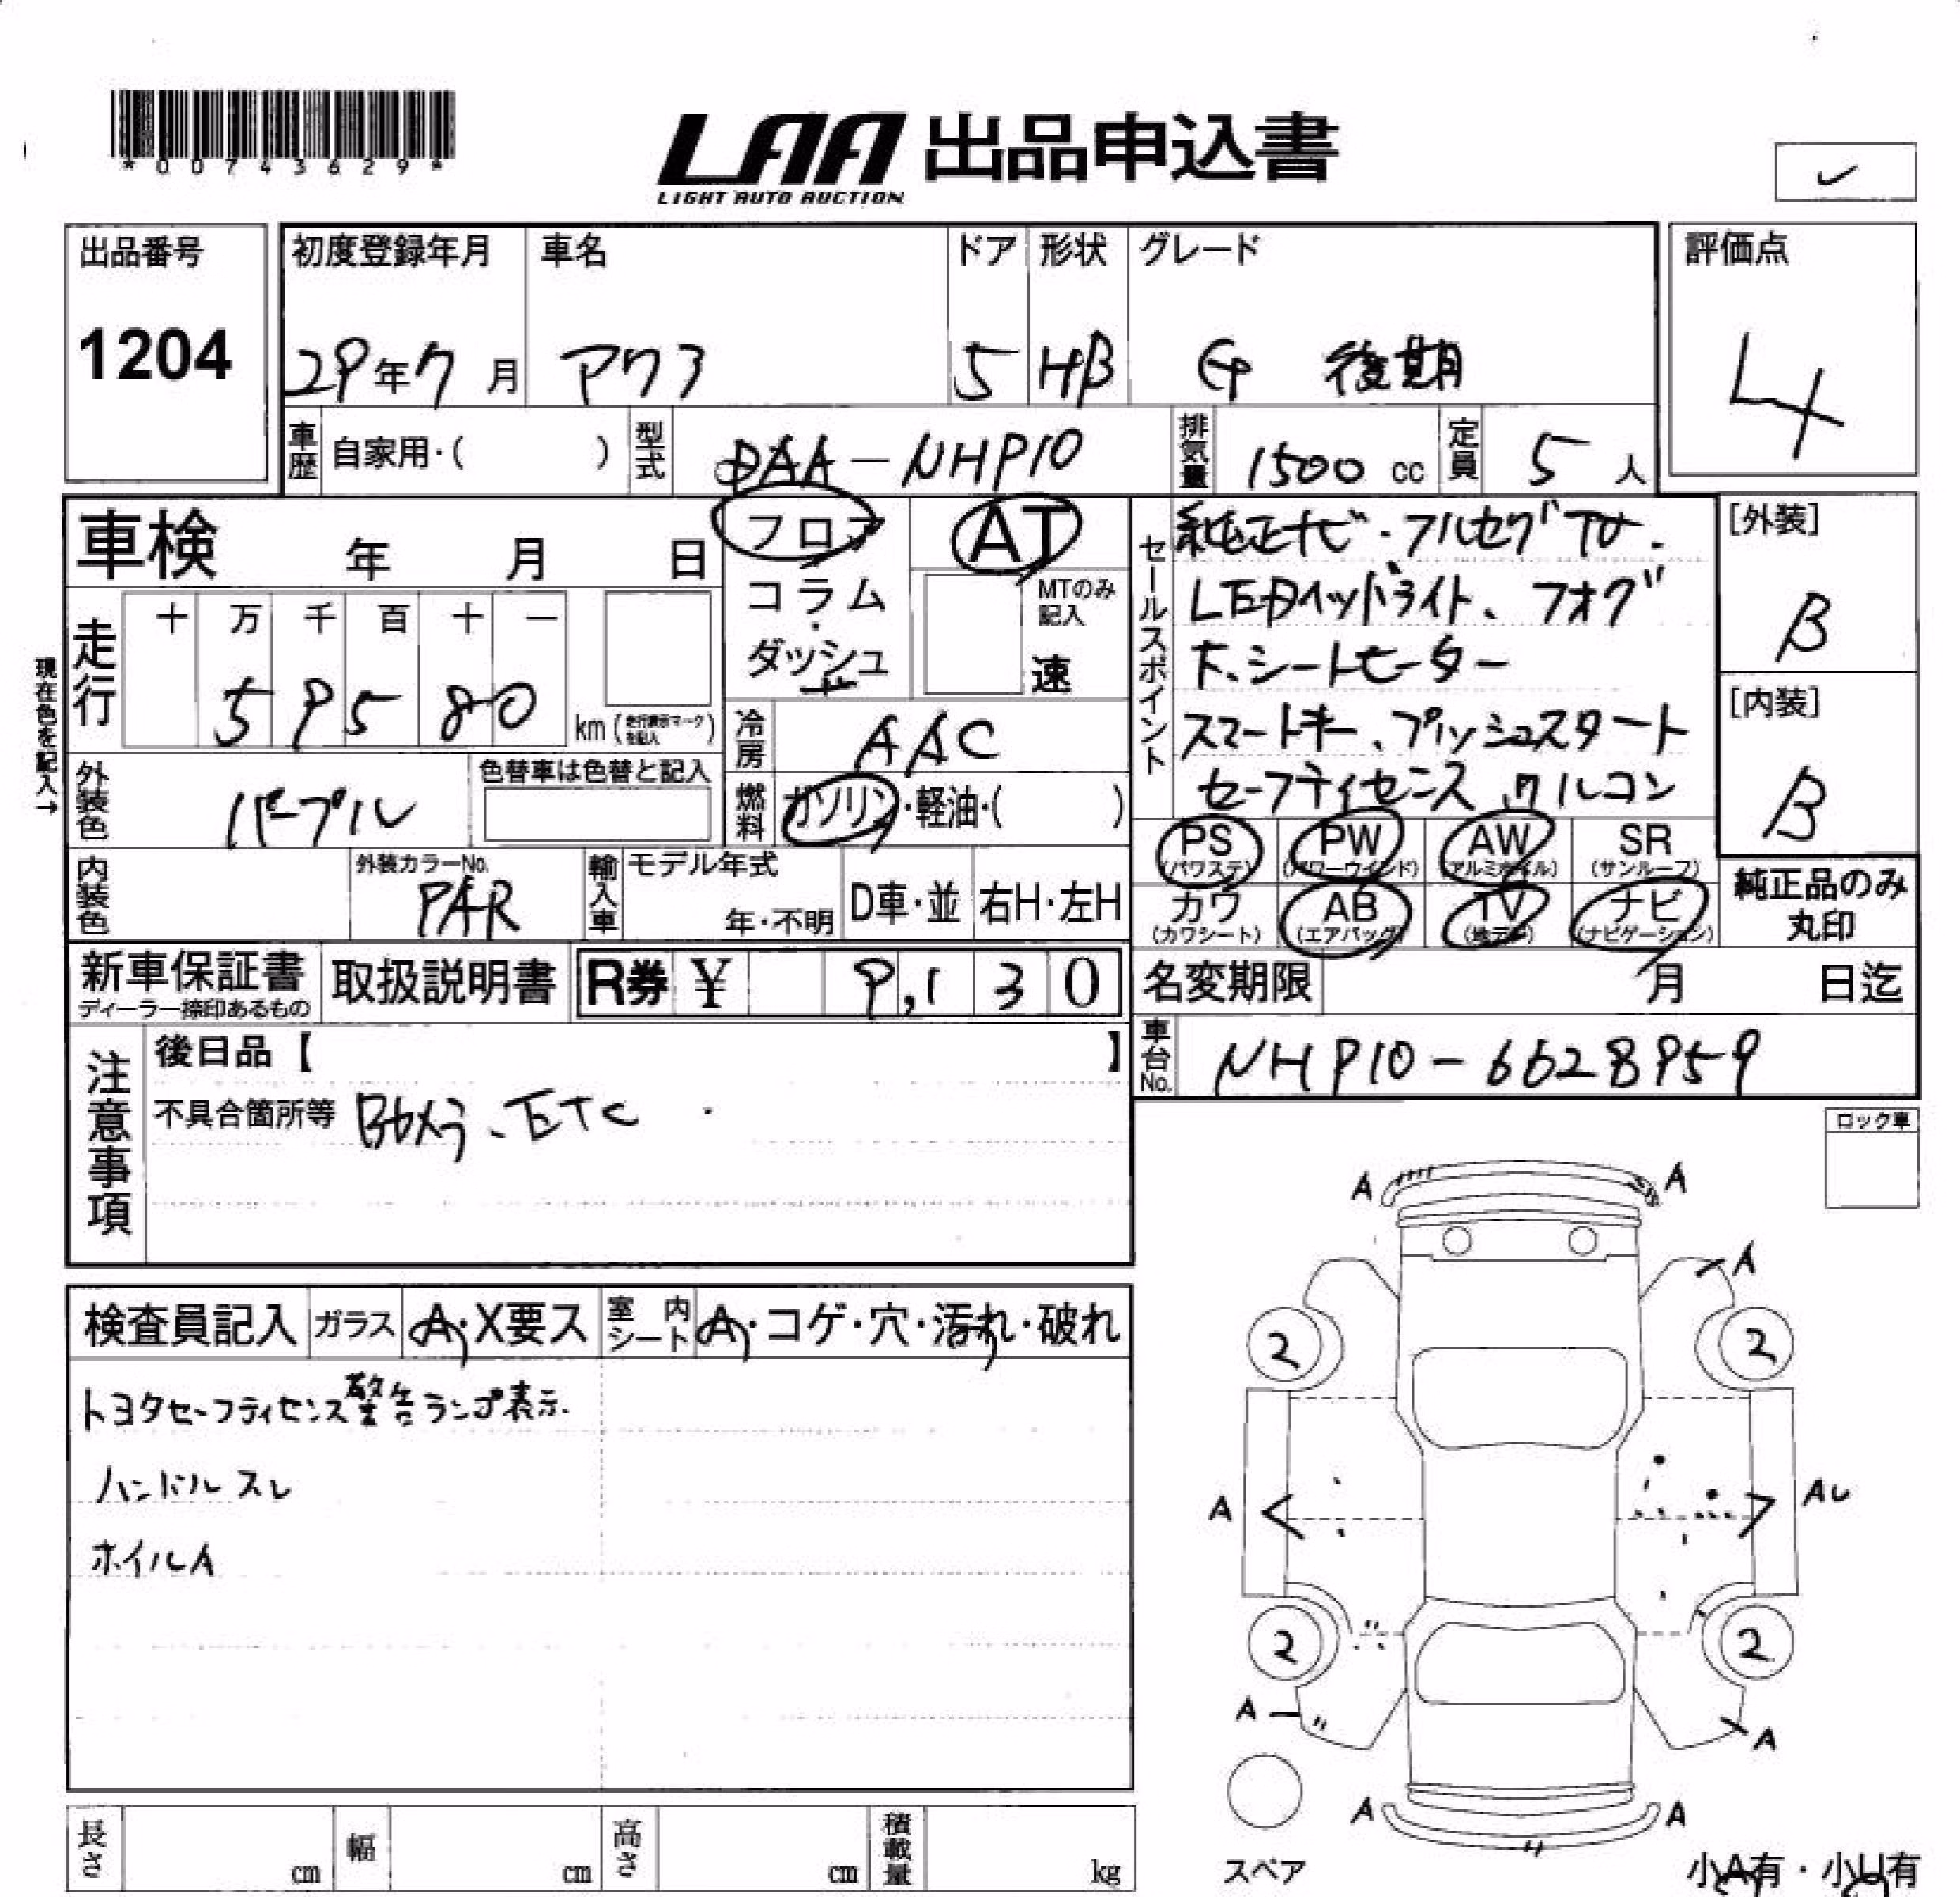 *00743629*
LAA 出品申込書
LIGHT AUTO AUCTION
✓
出品番号
1204
初度登録年月
29年7月
車名
アクア
ドア
5
形状
HB
グレード
G 後期
評価点
4
車歴
自家用・( )
型式
DAA-NHP10
排気量
1500 cc
定員
5 人
車検 年 月 日
フロア
コラム
ダッシュ
AT
MTのみ記入
速
セールスポイント
純正ナビ・フルセグTV.
LEDヘッドライト、フォグ
下、シートヒーター
スマートキー、プッシュスタート
セーフティセンス、クルコン
[外装]
B
[内装]
B
現在色を記入→
走行
十 万 千 百 十 一
5 9 5 8 0
km(走行表示マークを記入)
冷房
AAC
外装色
パープル
色替車は色替と記入
燃料
ガソリン・軽油・( )
PS
(パワステ)
PW
(パワーウインド)
AW
(アルミホイル)
SR
(サンルーフ)
カワ
(カワシート)
AB
(エアバッグ)
TV
(地デジ)
ナビ
(ナビゲーション)
純正品のみ
丸印
内装色
外装カラーNo.
PAR
輸入車
モデル年式
年・不明
D車・並
右H・左H
新車保証書
ディーラー捺印あるもの
取扱説明書
R券 ¥ 9,130
名変期限 月 日迄
車台No.
NHP10-6628959
注意事項
後日品【 】
不具合箇所等 Bカメラ、ETC
ロック車
検査員記入
ガラス A・X要ス
室内シート A・コゲ・穴・汚れ・破れ
トヨタセーフティセンス警告ランプ表示.
ハンドルスレ
ホイルA
A A
A
2 2
A AU
2 2
A A
A A
スペア
小A有・小U有
長さ cm
幅 cm
高さ cm
積載量 kg